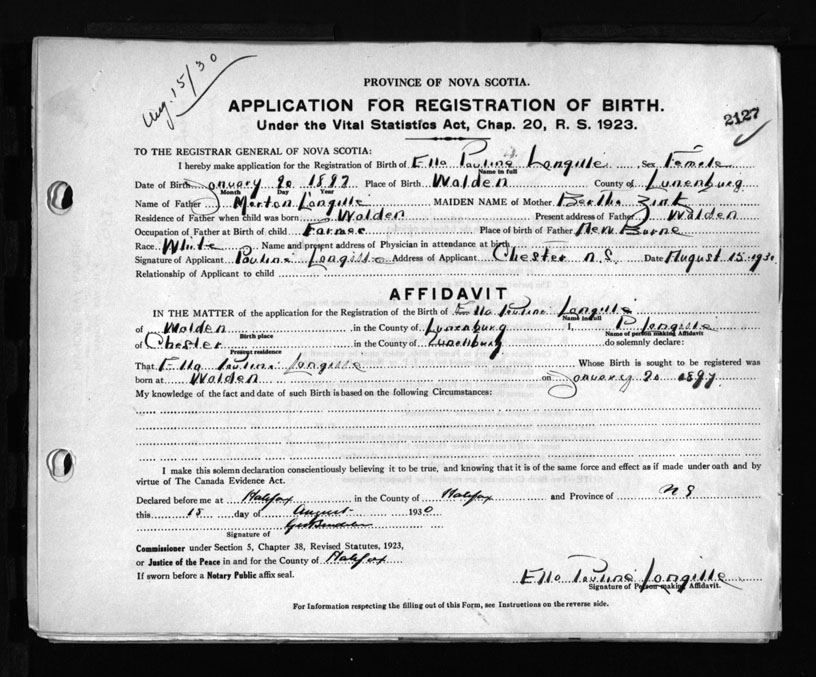 Aug. 15/30
PROVINCE OF NOVA SCOTIA.
APPLICATION FOR REGISTRATION OF BIRTH.
2127
Under the Vital Statistics Act, Chap. 20, R. S. 1923.
TO THE REGISTRAR GENERAL OF NOVA SCOTIA:
I hereby make application for the Registration of Birth of Ella Pauline Langille Sex Female
Name in full
Date of Birth January 20 1897 Place of Birth Walden County of Lunenburg
Month Day Year
Name of Father Morton Langille MAIDEN NAME of Mother Bertha Zink
Residence of Father when child was born Walden Present address of Father Walden
Occupation of Father at Birth of child Farmer Place of birth of Father New Burne
Race White Name and present address of Physician in attendance at birth
Signature of Applicant Pauline Langille Address of Applicant Chester N.S. Date August 15. 1930
Relationship of Applicant to child
AFFIDAVIT
IN THE MATTER of the application for the Registration of the Birth of Ella Pauline Langille
Name in full
of Walden in the County of Lunenburg I, P Langille
Birth place Name of person making Affidavit
of Chester in the County of Lunenburg do solemnly declare:
Present residence
That Ella Pauline Langille Whose Birth is sought to be registered was
born at Walden on January 20 1897.
My knowledge of the fact and date of such Birth is based on the following Circumstances:
I make this solemn declaration conscientiously believing it to be true, and knowing that it is of the same force and effect as if made under oath and by
virtue of The Canada Evidence Act.
Declared before me at Halifax in the County of Halifax and Province of N S
this 15 day of August 1930
Signature of
Commissioner under Section 5, Chapter 38, Revised Statutes, 1923,
or Justice of the Peace in and for the County of Halifax
If sworn before a Notary Public affix seal.
Ella Pauline Langille
Signature of Person making Affidavit.
For Information respecting the filling out of this Form, see Instructions on the reverse side.